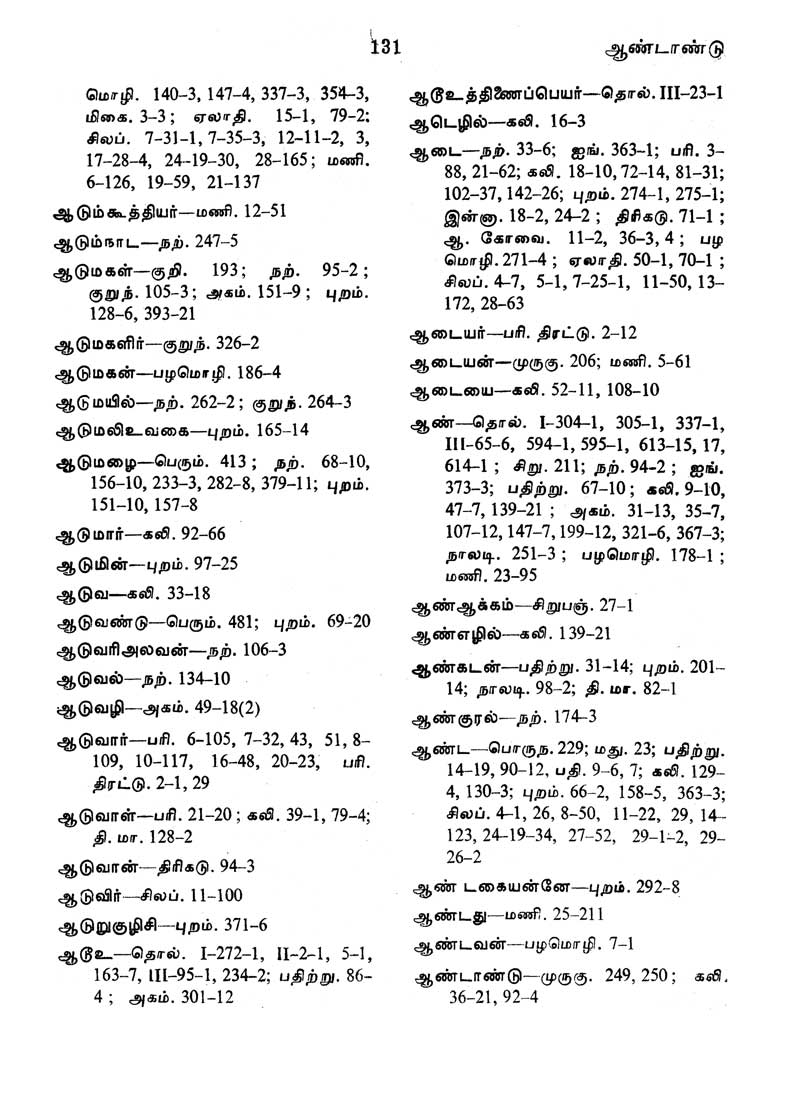 131
ஆண்டாண்டு
மொழி. 140–3, 147–4, 337–3, 354–3,
மிகை. 3–3; ஏலாதி. 15–1, 79–2;
சிலப். 7–31–1, 7–35–3, 12–11–2, 3,
17–28–4, 24–19–30, 28–165; மணி.
6–126, 19–59, 21–137
ஆடும்கூத்தியர்—மணி. 12–51
ஆடும்நாட—நற். 247–5
ஆடுமகள்—குறி. 193; நற். 95–2;
குறுந். 105–3; அகம். 151–9; புறம்.
128–6, 393–21
ஆடுமகளிர்—குறுந். 326–2
ஆடுமகன்—பழமொழி. 186–4
ஆடுமயில்—நற். 262–2; குறுந். 264–3
ஆடுமலிஉவகை—புறம். 165–14
ஆடுமழை—பெரும். 413; நற். 68–10,
156–10, 233–3, 282–8, 379–11; புறம்.
151–10, 157–8
ஆடுமார்—கலி. 92–66
ஆடுமின்—புறம். 97–25
ஆடுவ—கலி. 33–18
ஆடுவண்டு—பெரும். 481; புறம். 69–20
ஆடுவரிஅலவன்—நற். 106–3
ஆடுவல்—நற். 134–10
ஆடுவழி—அகம். 49–18(2)
ஆடுவார்—பரி. 6–105, 7–32, 43, 51, 8–
109, 10–117, 16–48, 20–23, பரி.
திரட்டு. 2–1, 29
ஆடுவாள்—பரி. 21–20; கலி. 39–1, 79–4;
தி. மா. 128–2
ஆடுவான்—திரிகடு. 94–3
ஆடுவிர்—சிலப். 11–100
ஆடுறுகுழிசி—புறம். 371–6
ஆடூஉ—தொல். I–272–1, II–2–1, 5–1,
163–7, III–95–1, 234–2; பதிற்று. 86–
4; அகம். 301–12
ஆடூஉத்திணைப்பெயர்—தொல். III–23–1
ஆடெழில்—கலி. 16–3
ஆடை—நற். 33–6; ஐங். 363–1; பரி. 3–
88, 21–62; கலி. 18–10, 72–14, 81–31;
102–37, 142–26; புறம். 274–1, 275–1;
இன்னா. 18–2, 24–2; திரிகடு. 71–1;
ஆ. கோவை. 11–2, 36–3, 4; பழ
மொழி. 271–4; ஏலாதி. 50–1, 70–1;
சிலப். 4–7, 5–1, 7–25–1, 11–50, 13–
172, 28–63
ஆடையர்—பரி. திரட்டு. 2–12
ஆடையன்—முருகு. 206; மணி. 5–61
ஆடையை—கலி. 52–11, 108–10
ஆண்—தொல். I–304–1, 305–1, 337–1,
III–65–6, 594–1, 595–1, 613–15, 17,
614–1; சிறு. 211; நற். 94–2; ஐங்.
373–3; பதிற்று. 67–10; கலி. 9–10,
47–7, 139–21; அகம். 31–13, 35–7,
107–12, 147–7, 199–12, 321–6, 367–3;
நாலடி. 251–3; பழமொழி. 178–1;
மணி. 23–95
ஆண்ஆக்கம்—சிறுபஞ். 27–1
ஆண்எழில்—கலி. 139–21
ஆண்கடன்—பதிற்று. 31–14; புறம். 201–
14; நாலடி. 98–2; தி. மா. 82–1
ஆண்குரல்—நற். 174–3
ஆண்ட—பொருந. 229; மது. 23; பதிற்று.
14–19, 90–12, பதி. 9–6, 7; கலி. 129–
4, 130–3; புறம். 66–2, 158–5, 363–3;
சிலப். 4–1, 26, 8–50, 11–22, 29, 14–
123, 24–19–34, 27–52, 29–1–2, 29–
26–2
ஆண் டகையன்னே—புறம். 292–8
ஆண்டது—மணி. 25–211
ஆண்டவன்—பழமொழி. 7–1
ஆண்டாண்டு—முருகு. 249, 250; கலி.
36–21, 92–4